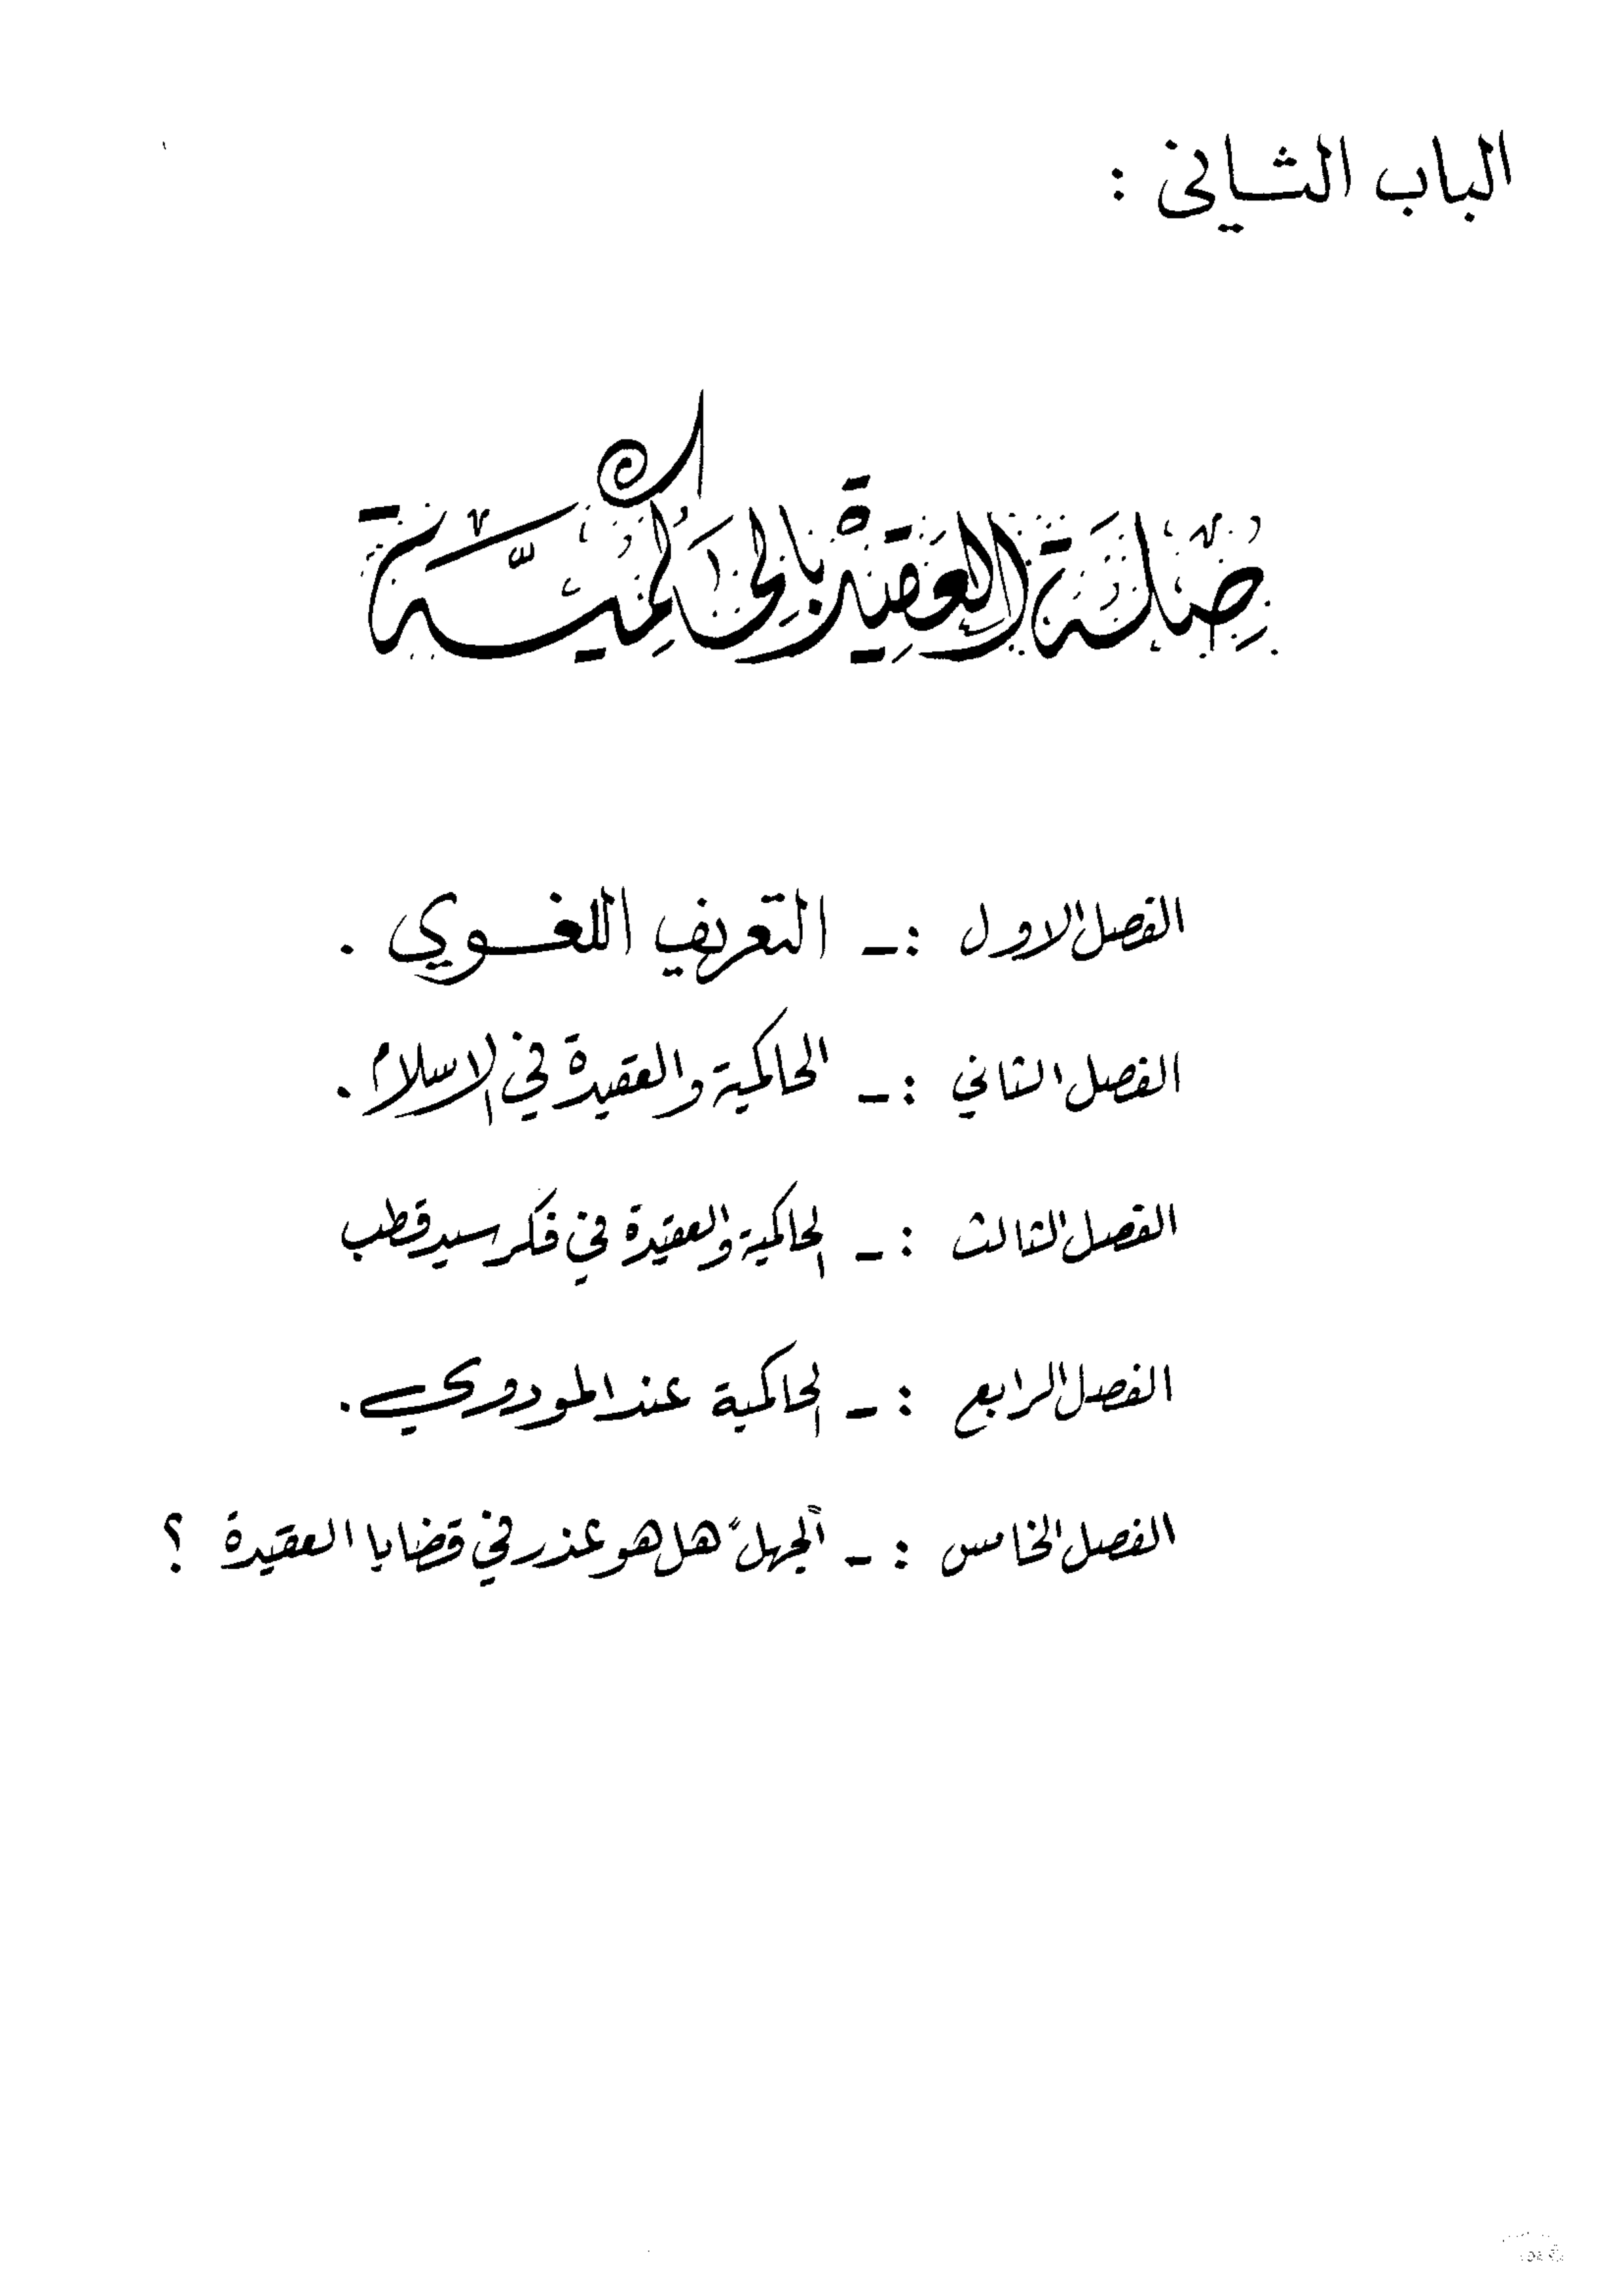 الباب الثاني :
صِلَة العَقِيدة بالحَاكِمِيَّة
الفصل الاول :ـ التعريف اللغوي .
الفصل الثاني :ـ الحاكمية والعقيدة في الاسلام .
الفصل الثالث :ـ الحاكمية والعقيدة في فكر سيد قطب
الفصل الرابع :ـ الحاكمية عند المودودي .
الفصل الخامس :ـ "الجهل" هل هو عذر في قضايا العقيدة ؟